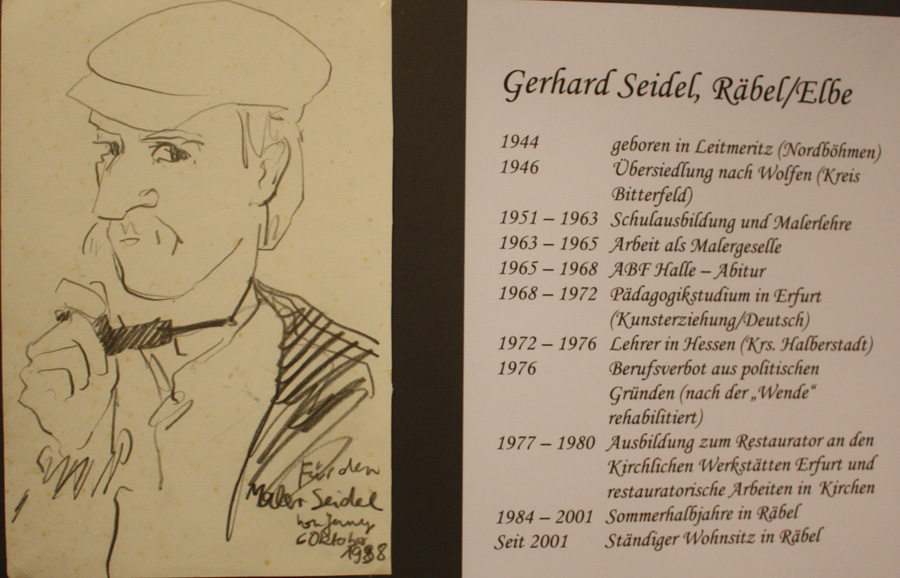 Für den
Maler Seidel
von Jenny
6 Oktober
1988
Gerhard Seidel, Räbel/Elbe
1944 geboren in Leitmeritz (Nordböhmen)
1946 Übersiedlung nach Wolfen (Kreis
Bitterfeld)
1951 – 1963 Schulausbildung und Malerlehre
1963 – 1965 Arbeit als Malergeselle
1965 – 1968 ABF Halle – Abitur
1968 – 1972 Pädagogikstudium in Erfurt
(Kunsterziehung/Deutsch)
1972 – 1976 Lehrer in Hessen (Krs. Halberstadt)
1976 Berufsverbot aus politischen
Gründen (nach der „Wende“
rehabilitiert)
1977 – 1980 Ausbildung zum Restaurator an den
Kirchlichen Werkstätten Erfurt und
restauratorische Arbeiten in Kirchen
1984 – 2001 Sommerhalbjahre in Räbel
Seit 2001 Ständiger Wohnsitz in Räbel